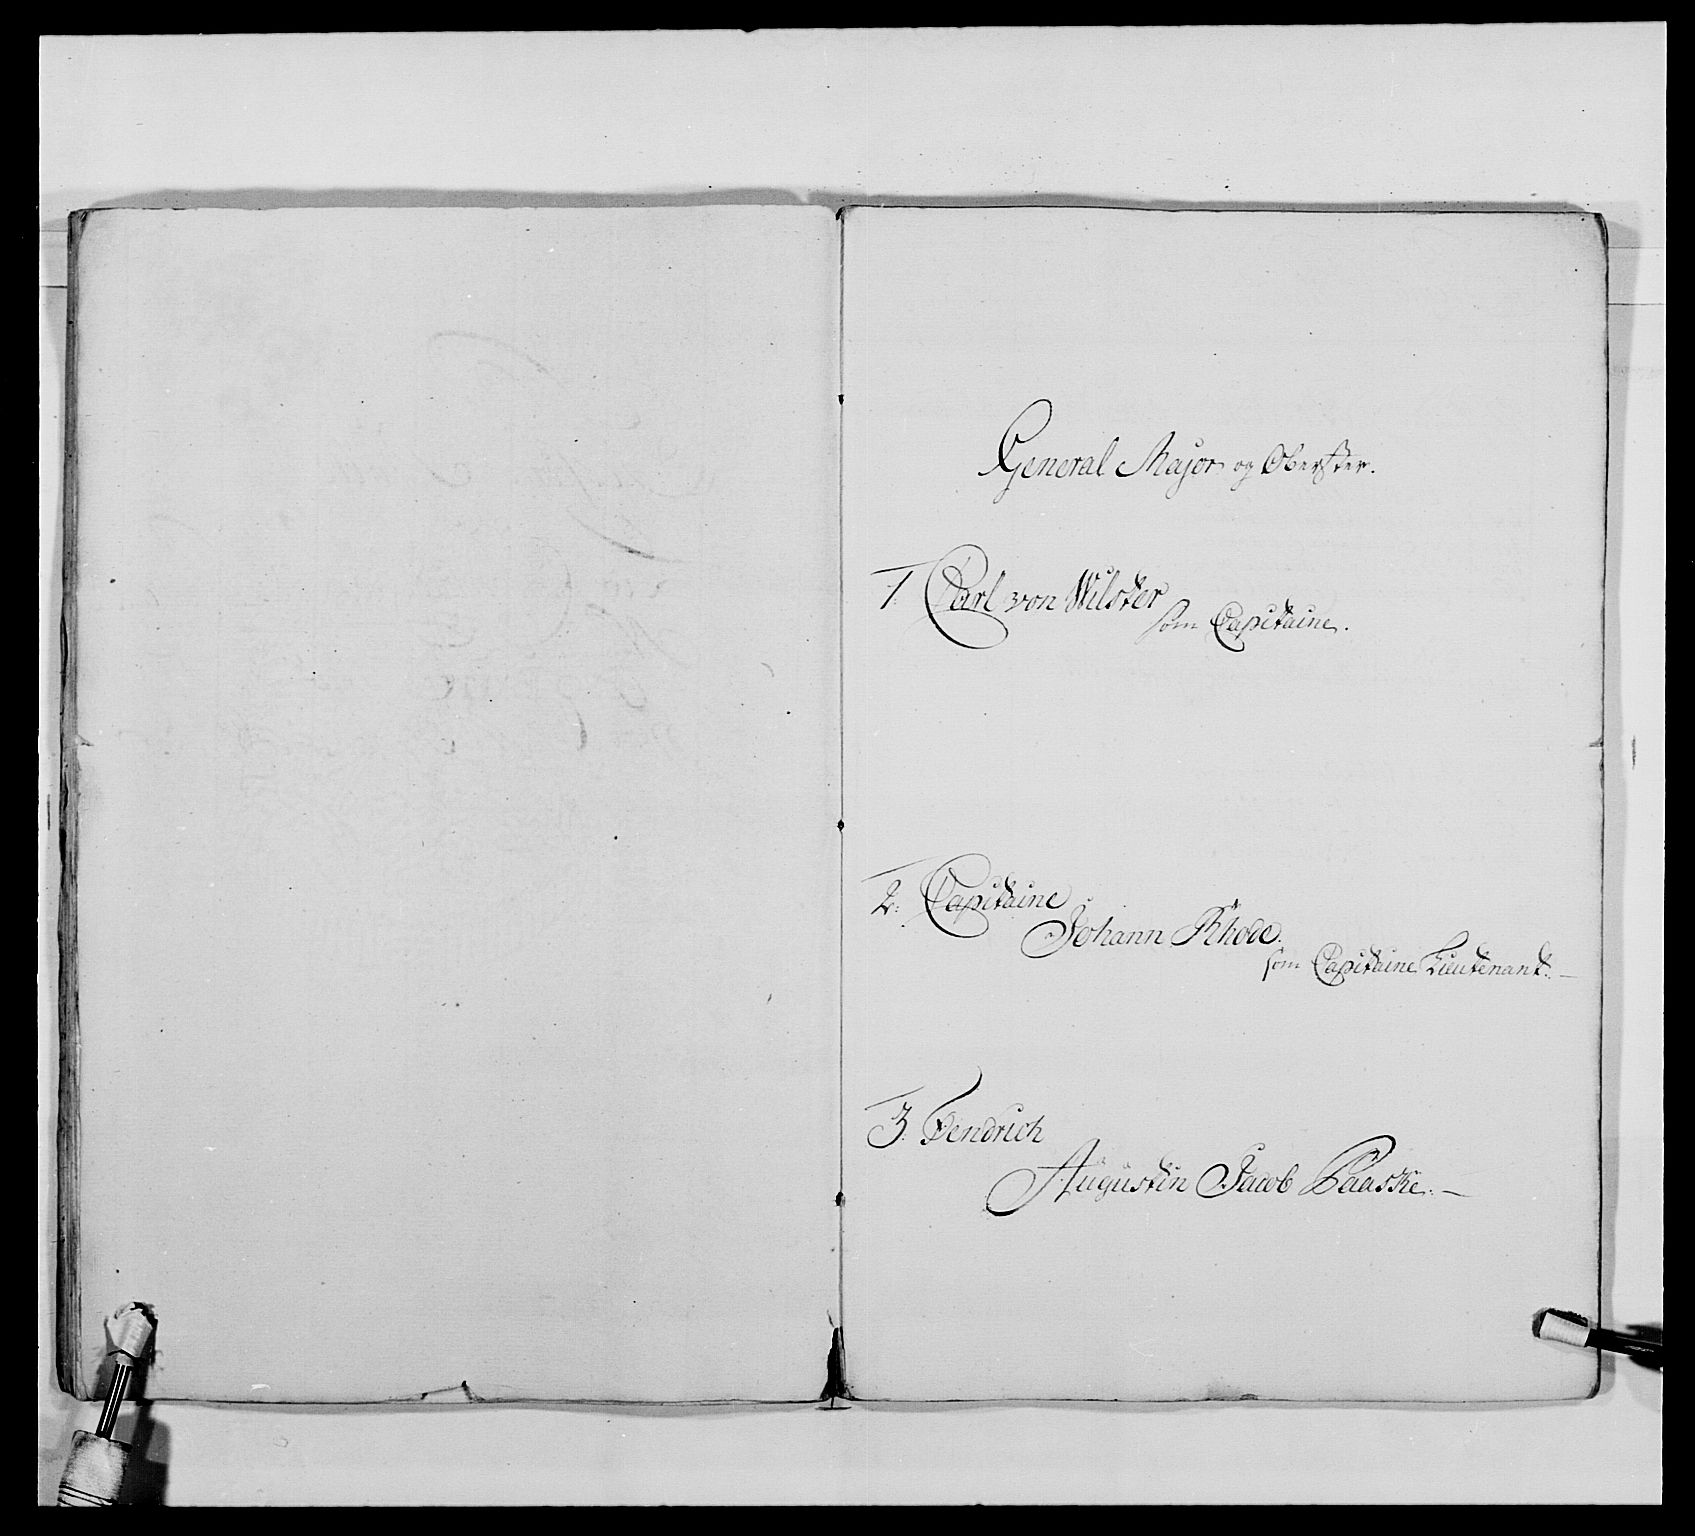 General Major og Oberster.
1. Carl von Wilster
som Capitaine.
2. Capitaine
Johann Rhode.
som Capitaine Lieutenant. —
3. Fendrich
Augustin Jacob Paaske. —